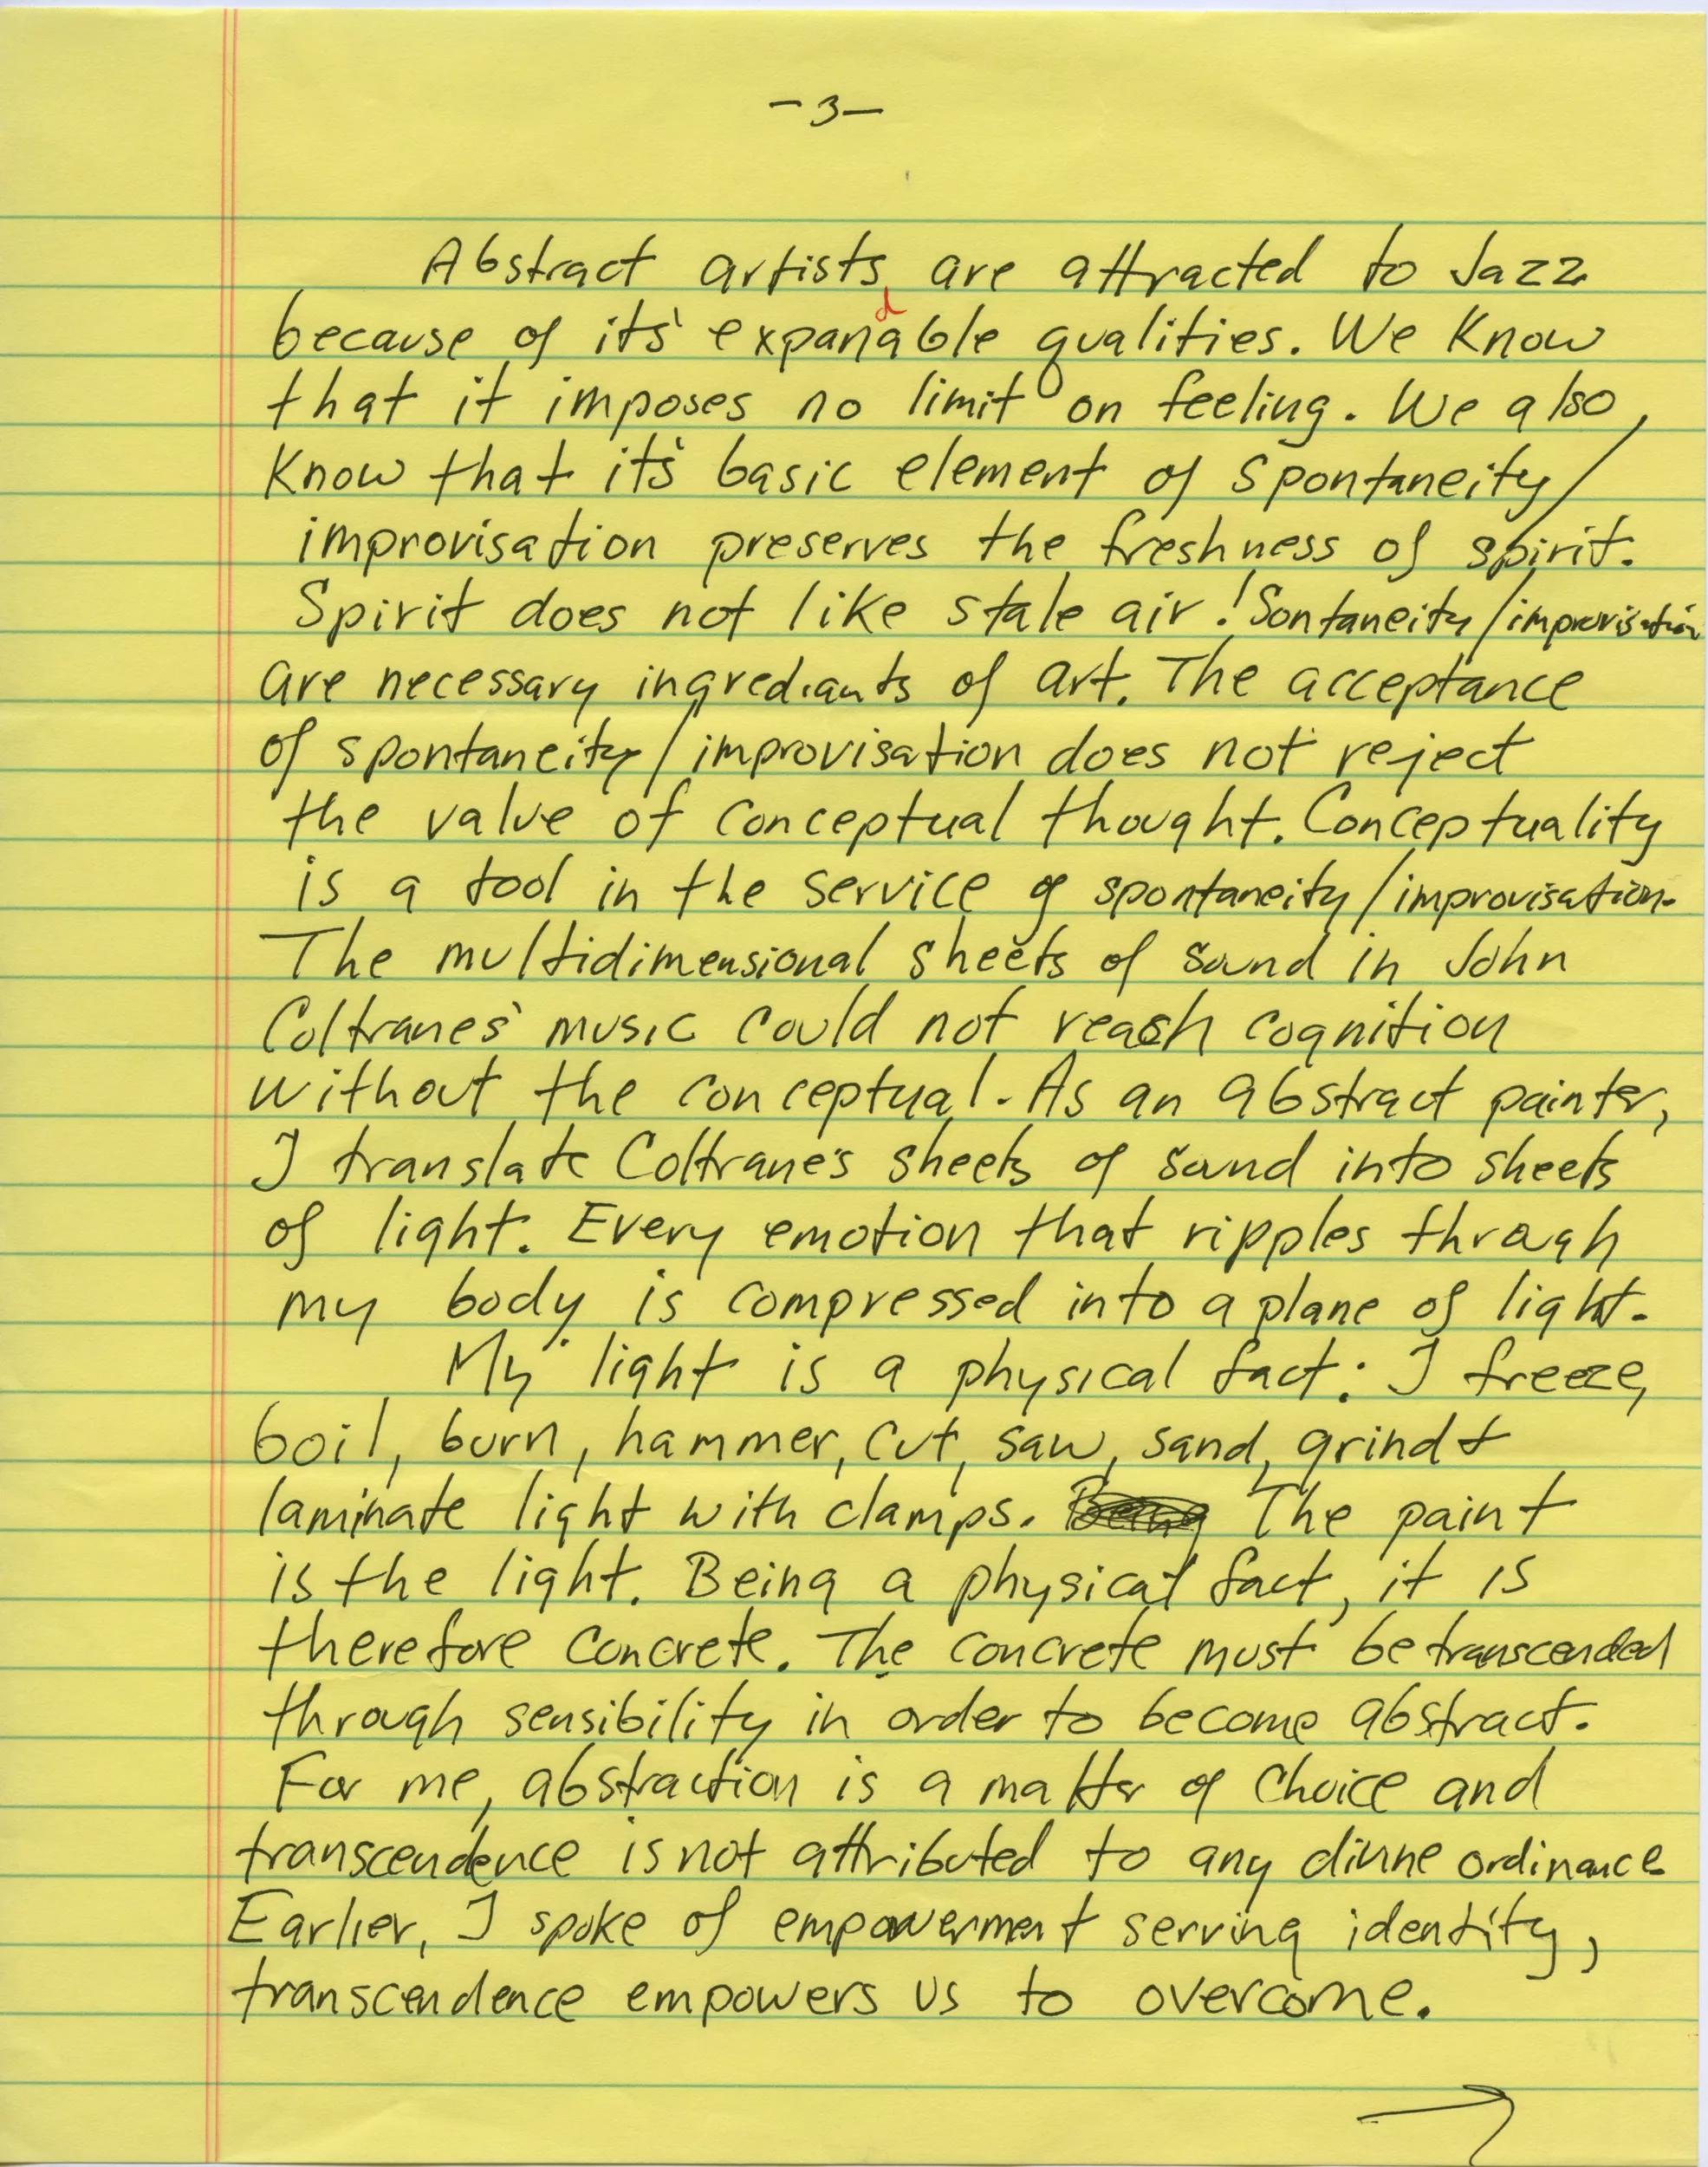 -3-
Abstract artists are attracted to Jazz
because of it's expandable qualities. We Know
that it imposes no limit on feeling. We also
Know that it's basic element of spontaneity/
improvisation preserves the freshness of spirit.
Spirit does not like stale air! Sontaneity/improvisation
are necessary ingrediants of art. The acceptance
of spontaneity/improvisation does not reject
the value of conceptual thought. Conceptuality
is a tool in the service of spontaneity/improvisation.
The multidimensional sheets of sound in John
Coltranes' music could not reach cognition
without the conceptual. As an abstract painter,
I translate Coltrane's sheets of sound into sheets
of light. Every emotion that ripples through
my body is compressed into a plane of light.
My light is a physical fact: I freeze,
boil, burn, hammer, cut, saw, sand, grind &
laminate light with clamps. The paint
is the light. Being a physical fact, it is
therefore concrete. The concrete must be transcended
through sensibility in order to become abstract.
For me, abstraction is a matter of choice and
transcendence is not attributed to any divine ordinance
Earlier, I spoke of empowerment serving identity,
transcendence empowers us to overcome.
→